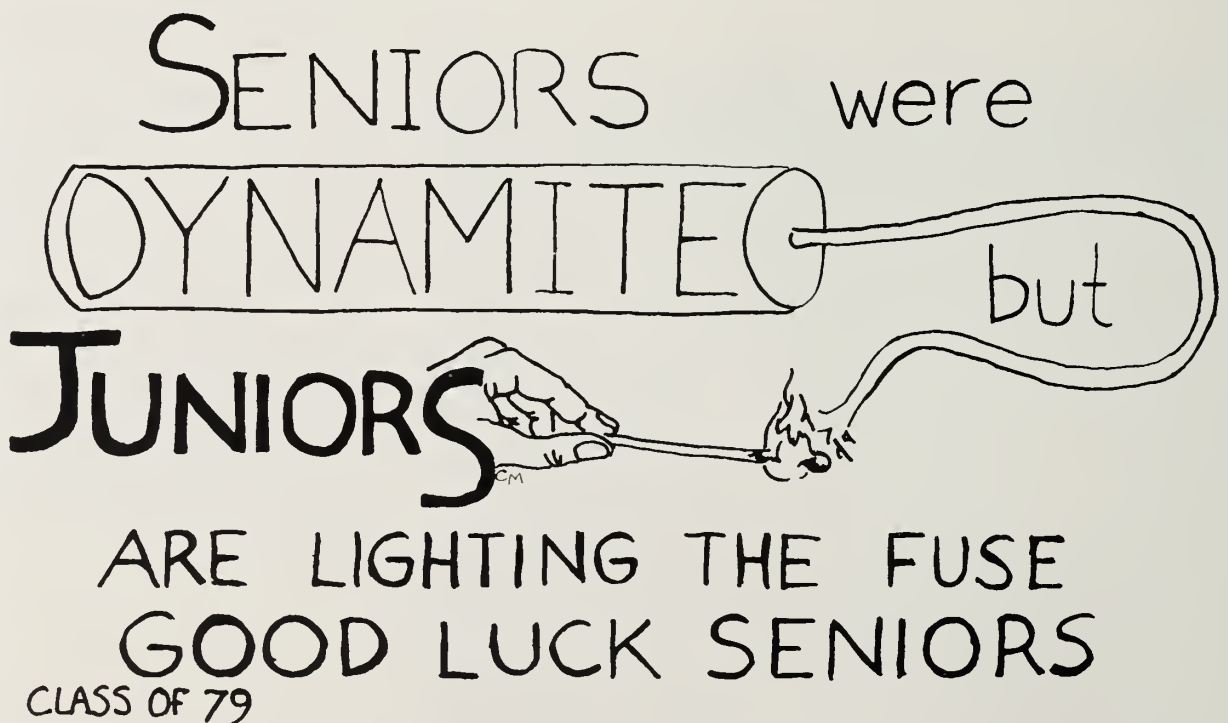 SENIORS were
DYNAMITE
but
JUNIORS
CM
ARE LIGHTING THE FUSE
GOOD LUCK SENIORS
CLASS OF 79